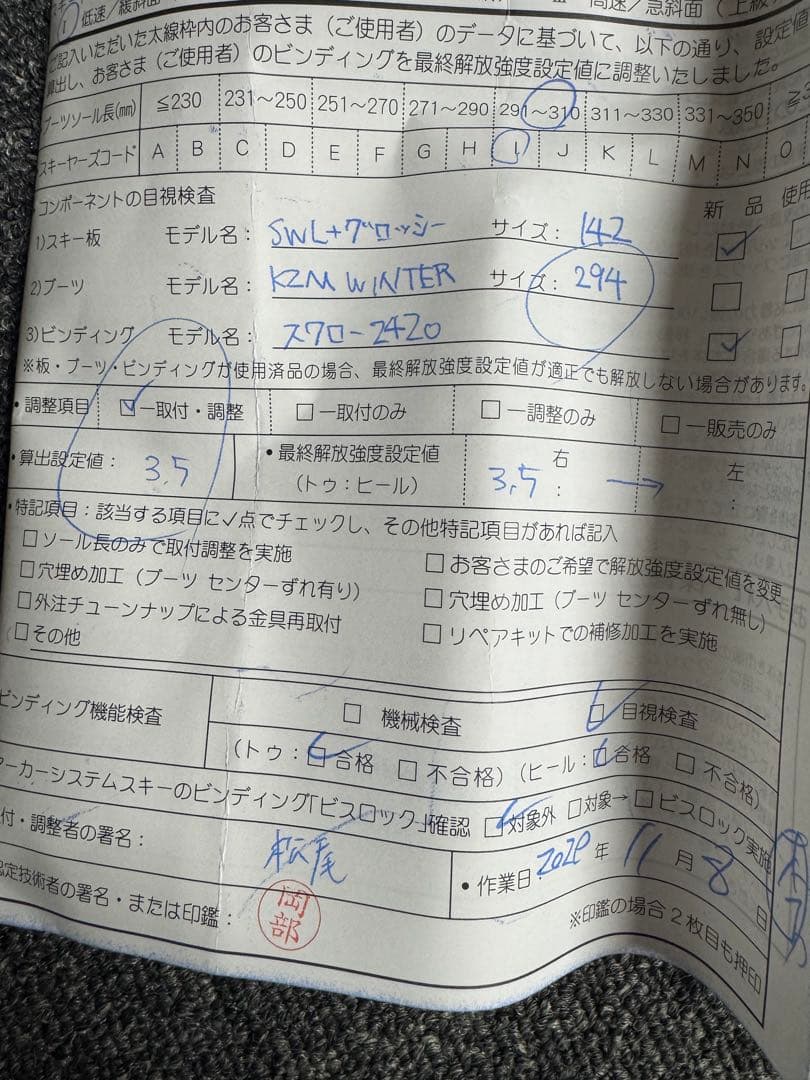 1 低速/緩斜面
Ⅲ 高速/急斜面(上級
ご記入いただいた太線枠内のお客さま(ご使用者)のデータに基づいて、以下の通り、設定値
算出し、お客さま(ご使用者)のビンディングを最終解放強度設定値に調整いたしました。
ブーツソール長(mm) ≦230 231〜250 251〜270 271〜290 291〜310 311〜330 331〜350 ≧3
スキーヤーズコード A B C D E F G H I J K L M N O
・コンポーネントの目視検査 新品 使用
1)スキー板 モデル名: SWL+グロッシー サイズ: 142
2)ブーツ モデル名: KZM WINTER サイズ: 294
3)ビンディング モデル名: スワロー2420
※板・ブーツ・ビンディングが使用済品の場合、最終解放強度設定値が適正でも解放しない場合があります。
・調整項目 ☑─取付・調整 □─取付のみ □─調整のみ □─販売のみ
・算出設定値: 3.5 ・最終解放強度設定値 (トゥ:ヒール) 右 3.5 : → 左 :
・特記項目:該当する項目に✓点でチェックし、その他特記項目があれば記入
□ソール長のみで取付調整を実施 □お客さまのご希望で解放強度設定値を変更
□穴埋め加工(ブーツ センターずれ有り) □穴埋め加工(ブーツ センターずれ無し)
□外注チューンナップによる金具再取付 □リペアキットでの補修加工を実施
□その他
ビンディング機能検査 □ 機械検査 ☑目視検査
(トゥ:☑合格 □ 不合格) (ヒール:☑合格 □ 不合格)
マーカーシステムスキーのビンディング「ビスロック」確認 ☑対象外 □対象→□ビスロック実施
付・調整者の署名: 松尾 ・作業日 2020年 11月 8日
認定技術者の署名・または印鑑: 岡部 ※印鑑の場合2枚目も押印